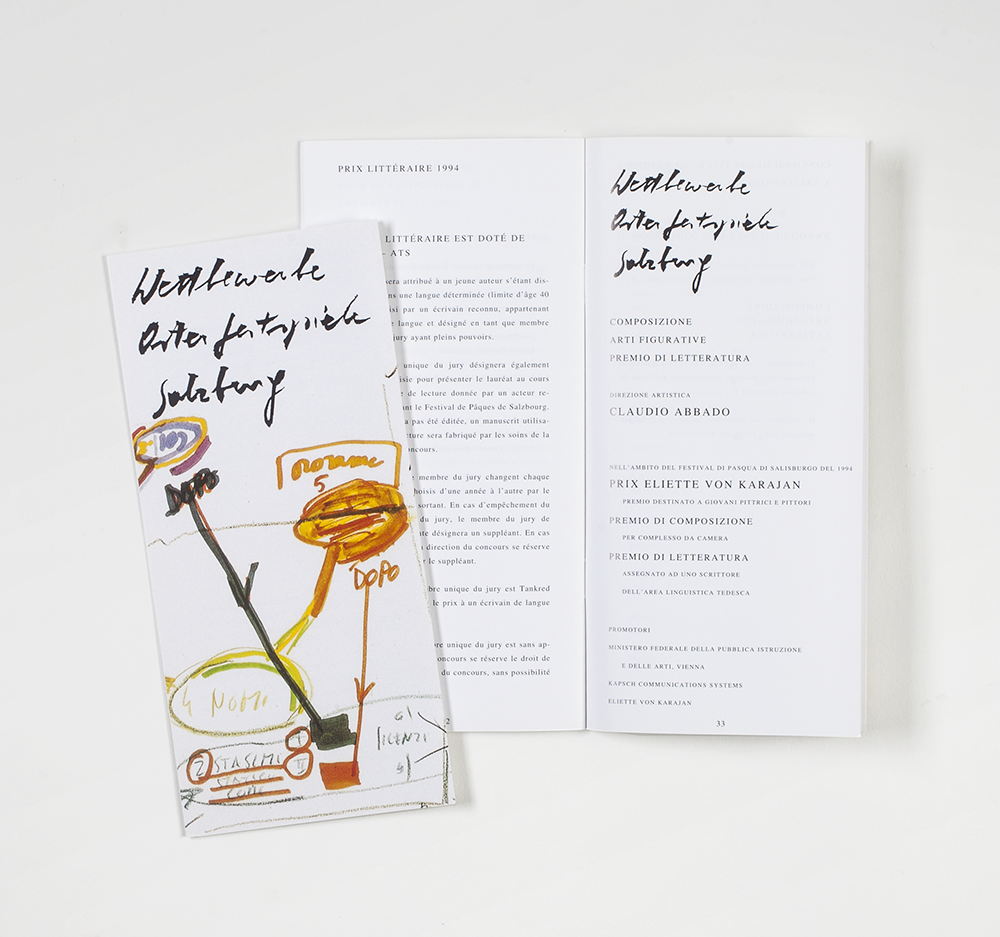 Wettbewerbe
Osterfestspiele
Salzburg
102
DOPO
5
DOPO
4 NOMI.
I
2 STASIMI II
PRIX LITTÉRAIRE 1994
LITTÉRAIRE EST DOTÉ DE
– ATS
sera attribué à un jeune auteur s’étant dis-
ns une langue déterminée (limite d’âge 40
isi par un écrivain reconnu, appartenant
e langue et désigné en tant que membre
jury ayant pleins pouvoirs.
unique du jury désignera également
isie pour présenter le lauréat au cours
e de lecture donnée par un acteur re-
ant le Festival de Pâques de Salzbourg.
a pas été éditée, un manuscrit utilisa-
cture sera fabriqué par les soins de la
concours.
e membre du jury changent chaque
hoisis d’une année à l’autre par le
sortant. En cas d’empêchement du
du jury, le membre du jury de
nte désignera un suppléant. En cas
direction du concours se réserve
r le suppléant.
bre unique du jury est Tankred
le prix à un écrivain de langue
bre unique du jury est sans ap-
oncours se réserve le droit de
du concours, sans possibilité
2
Wettbewerbe
Osterfestspiele
Salzburg
COMPOSIZIONE
ARTI FIGURATIVE
PREMIO DI LETTERATURA
DIREZIONE ARTISTICA
CLAUDIO ABBADO
NELL’AMBITO DEL FESTIVAL DI PASQUA DI SALISBURGO DEL 1994
PRIX ELIETTE VON KARAJAN
PREMIO DESTINATO A GIOVANI PITTRICI E PITTORI
PREMIO DI COMPOSIZIONE
PER COMPLESSO DA CAMERA
PREMIO DI LETTERATURA
ASSEGNATO AD UNO SCRITTORE
DELL’AREA LINGUISTICA TEDESCA
PROMOTORI
MINISTERO FEDERALE DELLA PUBBLICA ISTRUZIONE
E DELLE ARTI, VIENNA
KAPSCH COMMUNICATIONS SYSTEMS
ELIETTE VON KARAJAN
33